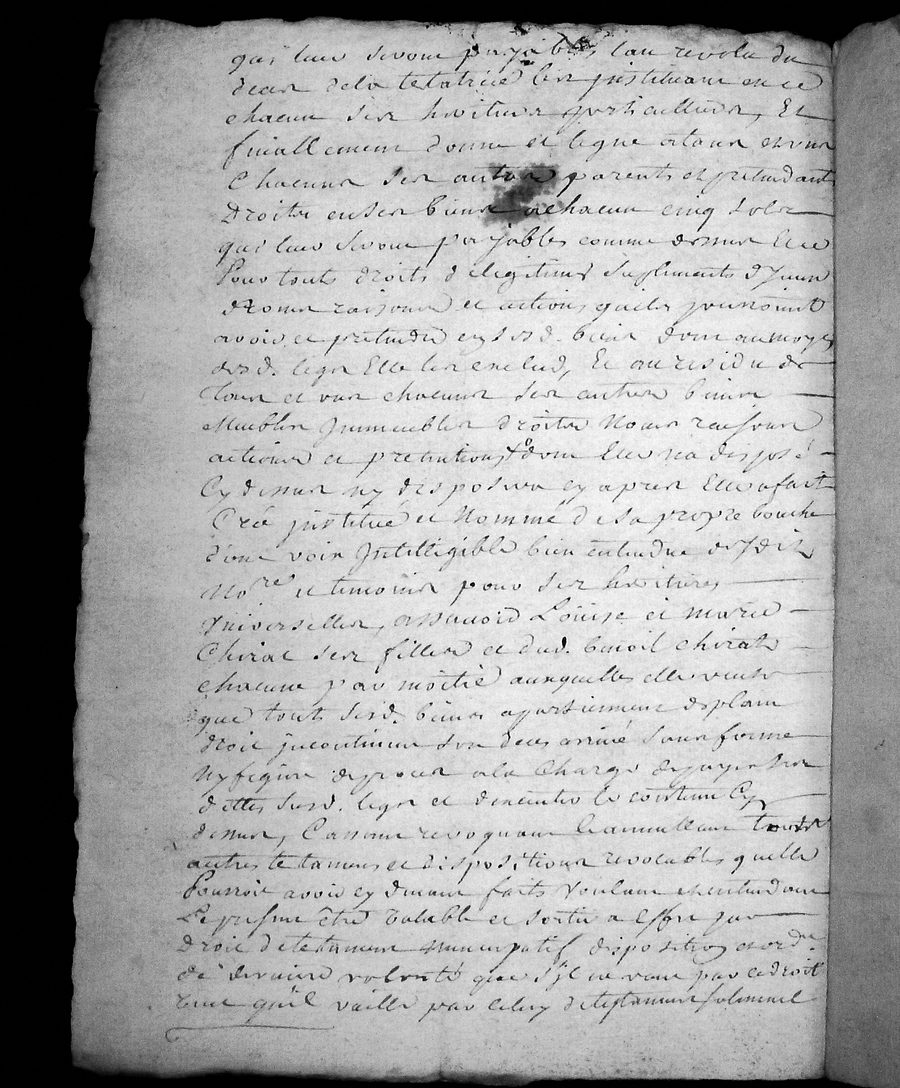 qui leur seront payables lan revolu du
deces dela tetatrice les jnstituant en ce
chacun ses heritiers particulliers, Et
finallement donne et legue a tous et uns
Chacuns ses autres parents et pretendant
Droits en ses biens a chacun cinq sols
qui leur seront payables comme dessus Et ce
Pour touts droits de legitime supliments d'jceux
Noms raisons et actions quils pourroint
avoir et pretendre en sesd. biens dont au moyen
desd. legs Elle les exclud, Et au residu de
Tous et uns chacuns ses autres biens
Meubles Jmmeubles droits Noms raisons
actions et pretentions dont Elle n'a disposé
Cy dessus ny disposera cy apres Elle a fait
Créé justitué et Nommé de sa propre bouche
d'une voix Jntelligible bien entendue desdits
No.re et temoins pour ses heritieres
Universelles, assavoir Loüise et marie
Chirat ses filles et dud. benoit chirat
chacune par moitié auxquelles elle veut
que touts sesd. biens apartiennent de plain
droit jncontinent son deces arrivé sans forme
Ny figure de proces a la Charge de payer ses
dettes sesd. legs et d'executer le contenu Cy
dessus, Cassant revoquant Et annullant touts
autres tetaments et dispositions revocables quelle
Pourroit avoir cy devant faits Voulant et entendant
Le present être valable et sortir a Effet par
Droit de tetament nuncupatif disposition et ord.ce
de derniere volonté que s'jl ne vaut par ce droit
veut qu'il vaille par celuy de testament solemnel